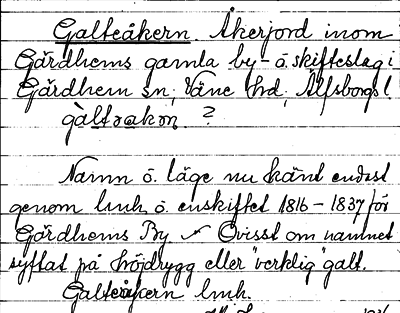 Galteåkern. Åkerjord inom
Gärdhems gamla by- o. skifteslag i
Gärdhem sn, Väne hd, Älfsborgs l.
galtɷakɷn ?
Namn o. läge nu känt endast
genom lmh. o. enskiftet 1816-1837 för
Gärdhems By. Ovisst om namnet
syftat på höjdrygg eller "verklig" galt.
Galteåkern lmh.